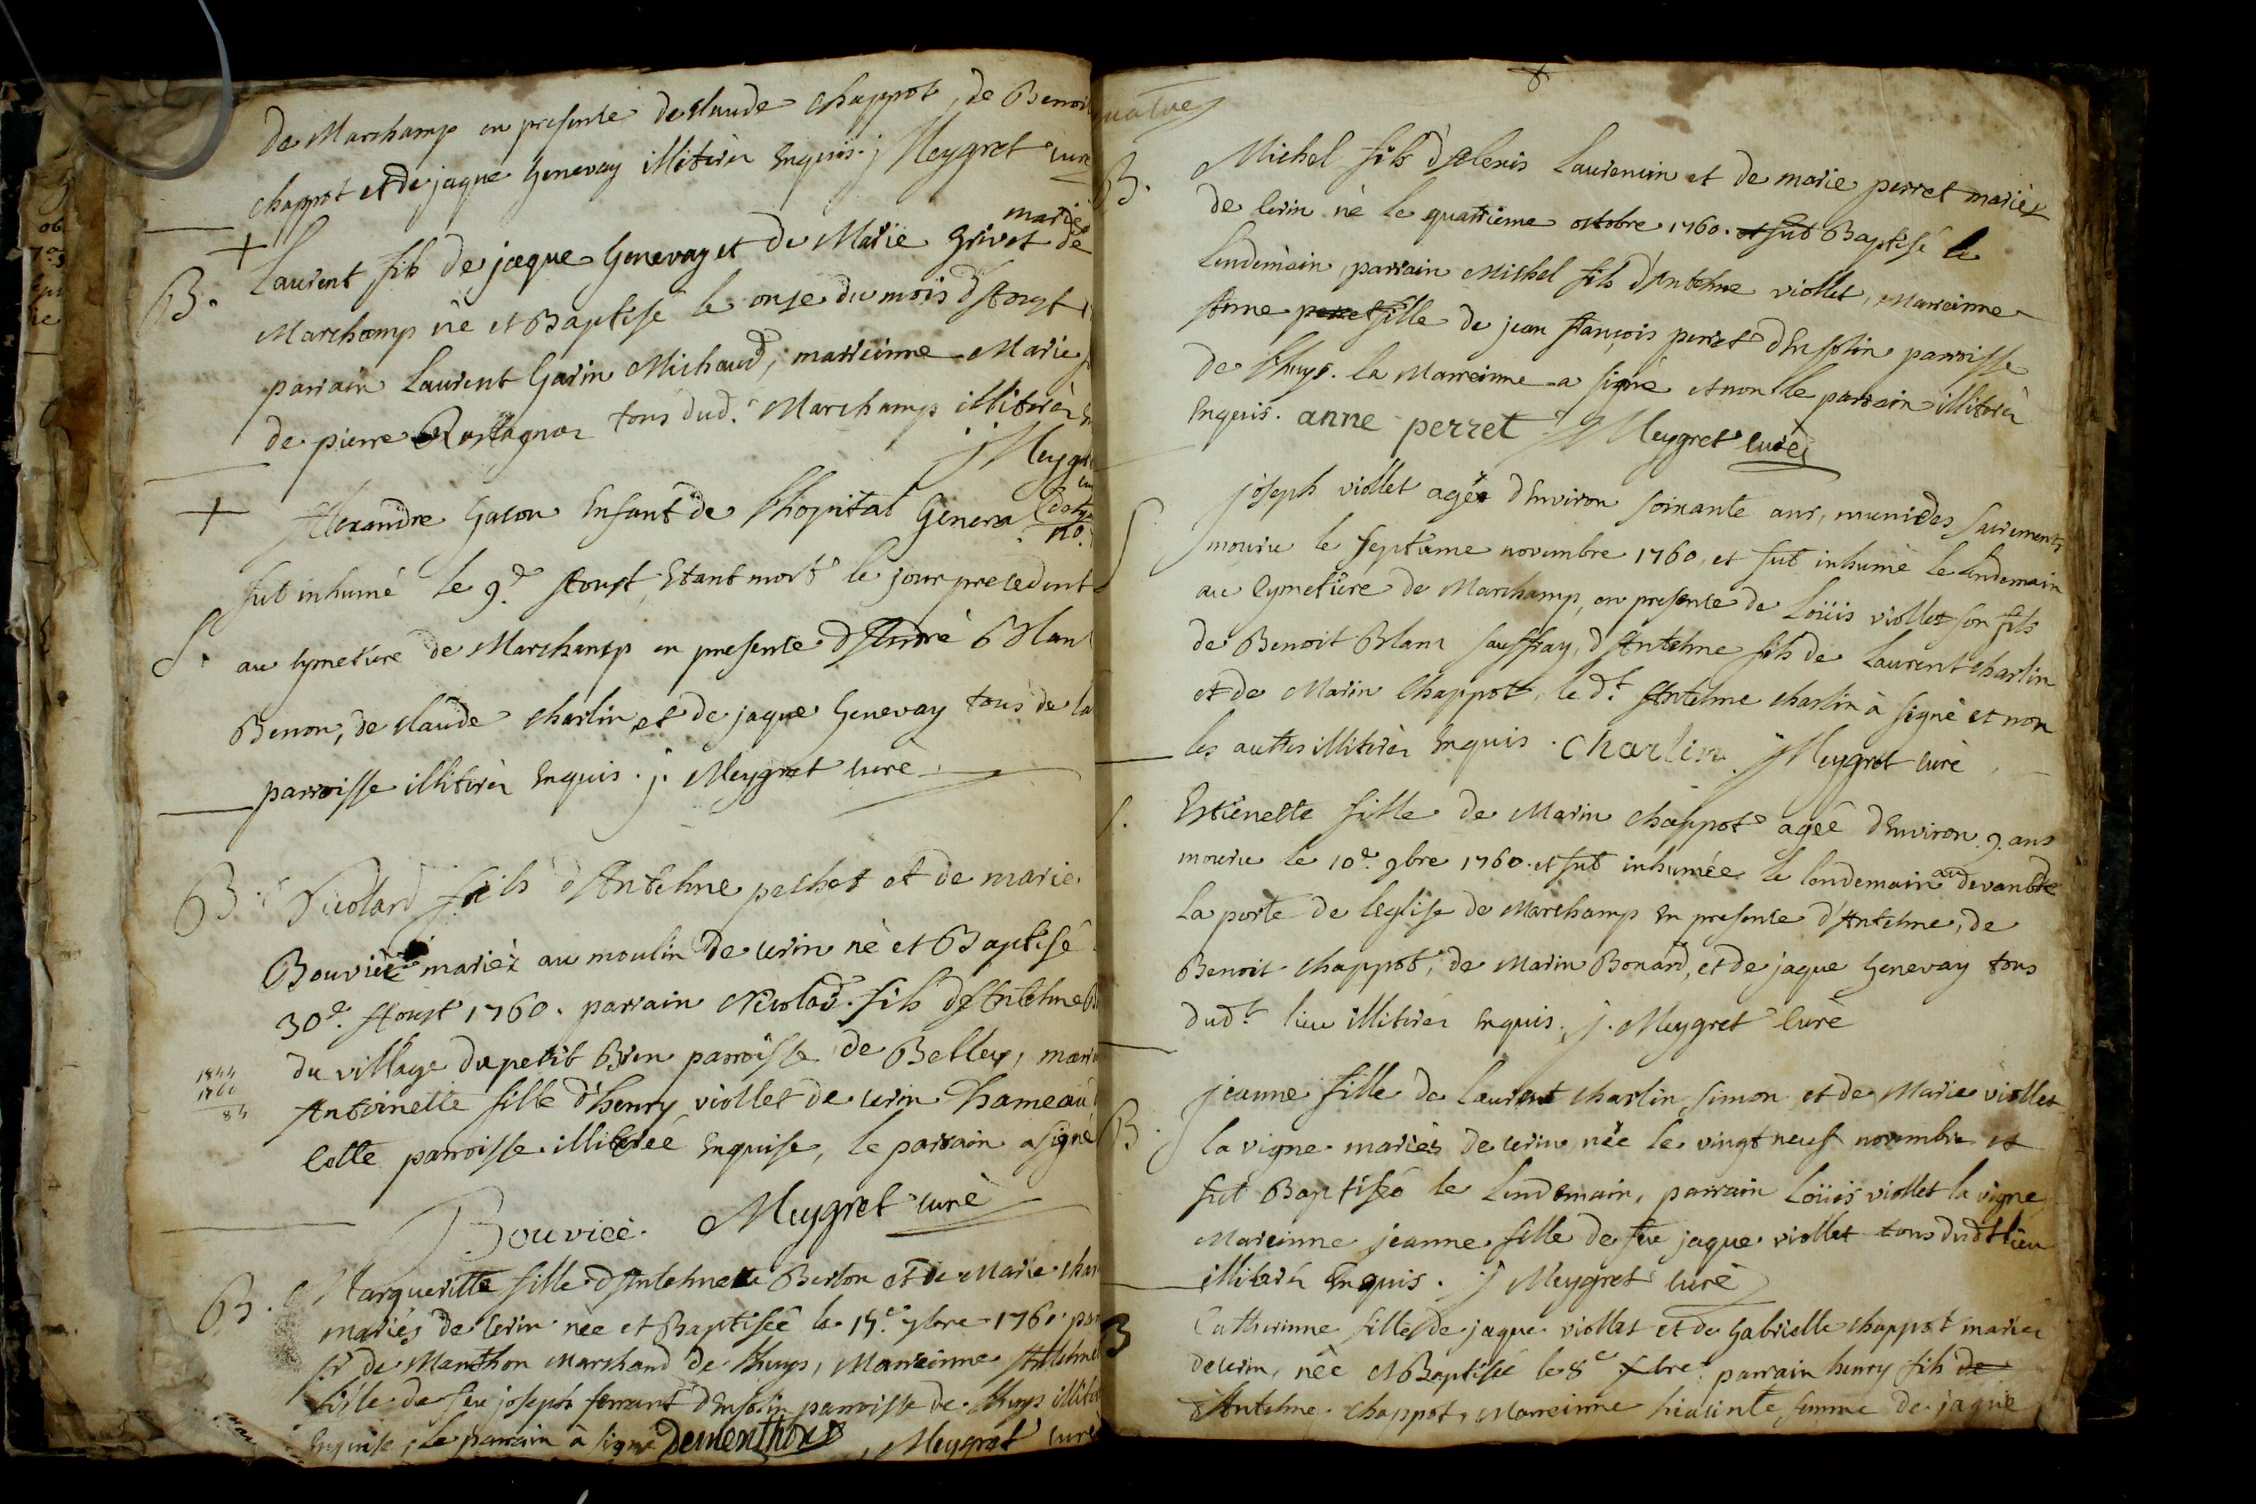 de Marchamp en presence de claude chappot, de Benoit
chappot et de jaque Genevay illiterés Enquis. j Meygret curé
marié
+
B. Laurent fils de jaque Genevay et de Marie Grivet de
Marchamp né et Baptisé le onze du mois d'Aougt
parrain Laurent Garin Michaud, marreinne Marie
de pierre Rostagnoz tous dud.t Marchamp illiterés
j Meygret
+
Alexandre Gacon Enfant de l'hopital General
n.o
S. fut inhumé le 9.e Aoust, Etant mort le jour precedent
au cymetiere de Marchamp en presence d'André Blanc
Benon, de claude charlin et de jaque Genevay tous de la
parroisse illiterés Enquis. j. Meygret curé
B. Nicolard fils d'Antelme pechet et de marie
Bouvier mariéz au moulin de cerin né et Baptisé
30.e Aoust 1760. parrain Nicolad fils d'Antelme B
du village du petit Bren parroisse de Belley, mar
1844
1760
84
Antoinette fille d'henry viollet de cerin hameau
cette parroisse illiterée Enquise, le parrain a signé
Bouvieé. Meygret curé
B. Margueritte fille d'Antelme Berlon et de Marie char
mariés de Cerin née et Baptisée le 15.e 7bre 1760. par
s.r de Manthon Marchand de Lhuys, Marreinne Antelme
fille de feu joseph ferrant d'Ensolin parroisse de Lhuys illite
Enquise, le parrain à signé Dementhon, Meygret curé
quatre
B. Michel fils d'Alexis Laurencin et de marie perret mariéz
de Cerin né le quatrieme octobre 1760. et fut Baptisé le
Lendemain, parrain Michel fils d'Antelme viollet, Marreinne
Anne perret fille de jean françois perret d'Ensolin parroisse
de Lhuys. la Marreinne a signé et non le parrain illiteré
Enquis. anne perret j Meygret curé
S. joseph viollet agée d'Environ soixante ans, muni des sacrements
mouru le septieme novembre 1760, et fut inhumé le lendemain
au Cymetiere de Marchamp, en presence de Loüis viollet son fils
de Benoit Blanc sauffray, d'Antelme fils de Laurent charlin
et de Marin Chappot, le d.t Antelme charlin à signé et non
les autres illiterés Enquis. Charlin j Meygret curé
S. Estienette fille de Marin chappot agée d'Environ 9. ans
mouru le 10.e 9bre 1760. et fut inhumée le lendemain au devant de
la porte de l'église de Marchamp En presence d'Antelme, de
Benoit chappot, de Marin Bonard, et de jaque Genevay tous
dud.t lieu illiterés Enquis. j. Meygret Curé
B. jeanne fille de Laurent charlin simon et de Marie viollet
la vigne mariés de cerin née le vingt neuf novembre et
fut Baptisée le Lendemain, parrain Loüis viollet la vigne
Mareinne jeanne fille de feu jaque viollet tous dudt lieu
illiterés Enquis. j Meygret curé
B Catherinne fille de jaque viollet et de Gabrielle chappot mariés
de cerin, née et Baptisée le 8.e xbre. parrain henry fils de
d'Antelme chappot, Marreinne hiacinte femme de jaque